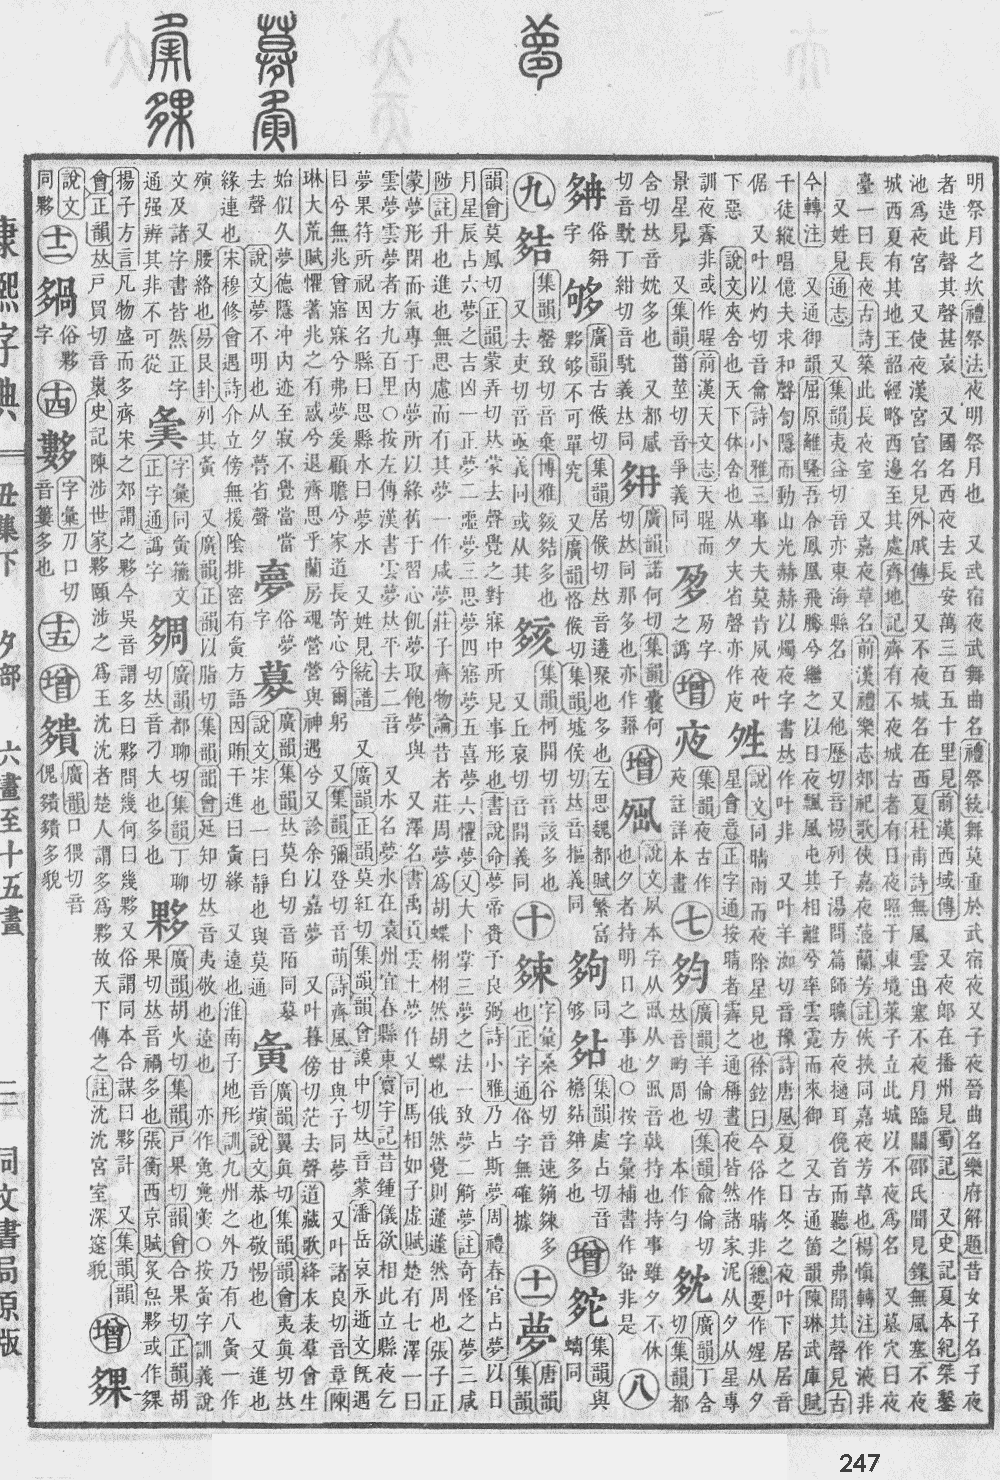 明祭月之坎禮祭法夜明祭月也　又武宿夜武舞曲名禮祭統舞莫重於武宿夜又子夜晉曲名樂府解題昔女子名子夜
者造此聲其聲甚哀　又國名西夜去長安萬三百五十里見前漢西域傳　又夜郎在播州見蜀記　又史記夏本紀桀鑿
池爲夜宮　又使夜漢宮官名見外戚傳　又不夜城名在西夏杜甫詩無風雲出塞不夜月臨關邵氏聞見錄無風塞不夜
城西夏有其地王韶經略西邊至其處齊地記齊有不夜城古者有日夜照于東境萊子立此城以不夜爲名　又墓穴曰夜
臺一曰長夜古詩築此長夜室　又嘉夜草名前漢禮樂志郊祀歌俠嘉夜茝蘭芳註俠挾同嘉夜芳草也楊愼轉注作液非
又姓見通志　又集韻夷益切音亦東海縣名　又他歷切音惕列子湯問篇師曠方夜擿耳俛首而聽之弗聞其聲見古
今轉注　又通御韻屈原離騷吾令鳳凰飛騰兮繼之以日夜飄風屯其相離兮率雲霓而來御　又古通箇韻陳琳武庫賦
千徒縱唱億夫求和聲訇隱而動山光赫赫以燭夜字書𠀤作叶非　又叶羊洳切音豫詩唐風夏之日冬之夜叶下居居音
倨　又叶以灼切音龠詩小雅三事大夫莫肯夙夜叶
下惡　說文夾舍也天下休舍也从夕夾省聲亦作亱
夝說文同晴雨而夜除星見也徐鉉曰今俗作晴非總要作暒从夕
星會意正字通按晴者霽之通稱晝夜皆然諸家泥从夕从星專
訓夜霽非或作暒前漢天文志天暒而
景星見　又集韻甾莖切音爭義同
𡖉夃字之譌
增
㡿集韻夜古作㡿註詳本畫
七
㚬廣韻羊倫切集韻兪倫切𠀤音畇周也　本作勻
𡖓廣韻丁含切集韻都
含切𠀤音妉多也　又都感
切音黕丁紺切音馾義𠀤同
𡖔廣韻諾何切集韻囊何切𠀤同那多也亦作䋾
增
𡖊說文夙本字从丮从夕丮音戟持也持事雖夕不休
也夕者持明日之事也○按字彙補書作㝸非是
八
𡖖俗𡖔字
够廣韻古候切集韻居候切𠀤音遘聚也多也左思魏都賦繁富
夥够不可單究　又廣韻恪侯切集韻墟侯切𠀤音摳義同
夠同够
㚲集韻處占切音襜㚲𡖖多也
增
㚰集韻與螭同
九
𡖙集韻馨致切音棄博雅𡖼𡖙多也
又去吏切音亟義同或从其
𡖼集韻柯開切音該多也
又丘哀切音開義同
十
𡖶字彙桑谷切音速𡖷𡖶多
也正字通俗字無確據
十一
夢唐韻集韻
韻會莫鳳切正韻蒙弄切𠀤蒙去聲覺之對寐中所見事形也書說命夢帝賚予良弼詩小雅乃占斯夢周禮春官占夢以日
月星辰占六夢之吉凶一正夢二噩夢三思夢四寤夢五喜夢六懼夢又大卜掌三夢之法一致夢二觭夢註奇怪之夢三咸
陟註升也進也無思慮而有其夢一作咸夢莊子齊物論昔者莊周夢爲胡蝶栩栩然胡蝶也俄然覺則蘧蘧然周也張子正
蒙夢形閉而氣專于內夢所以緣舊于習心飢夢取飽夢與　又澤名書禹貢雲土夢作又司馬相如子虛賦楚有七澤一曰
雲夢雲夢者方九百里○按左傳漢書雲夢𠀤平去二音　又水名夢水在袁州宜春縣東寰宇記昔鍾儀欲相此立縣夜乞
夢果符所祝因名縣曰思縣水曰夢水　又姓見統譜　又廣韻正韻莫紅切集韻韻會謨中切𠀤音蒙潘岳哀永逝文旣遇
目兮無兆曾寤寐兮弗夢爰顧瞻兮家道長寄心兮爾躬　又集韻彌登切音萌詩齊風甘與子同夢　又叶諸良切音章陳
琳大荒賦懼著兆之有惑兮退齊思乎蘭房魂營營與神遇兮又診余以嘉夢　又叶暮傍切茫去聲道藏歌絳衣表羣會生
始似久夢德隱冲內迹至寂不覺當當
去聲　說文夢不明也从夕瞢省聲
𡖸俗夢字
夣廣韻集韻𠀤莫白切音陌同募
說文宋也一曰靜也與莫通
夤廣韻翼眞切集韻韻會夷眞切𠀤
音寅說文恭也敬惕也　又進也
緣連也宋穆修會遇詩介立傍無援陰排密有夤方語因賄干進曰夤緣　又遠也淮南子地形訓九州之外乃有八夤一作
殥　又腰絡也易艮卦列其夤　又廣韻正韻以脂切集韻韻會延知切𠀤音夷敬也遠也　亦作㚆㝙○按夤字訓義說
文及諸字書皆然正字
通强辨其非不可從
𡖾字彙同夤籀文
正字通譌字
𡖽廣韻都聊切集韻丁聊
切𠀤音刁大也多也
夥廣韻胡火切集韻戸果切韻會合果切正韻胡
果切𠀤音禍多也張衡西京賦炙炰夥或作㚌
揚子方言凡物盛而多齊宋之郊謂之夥今吳音謂多曰夥問幾何曰幾夥又俗謂同本合謀曰夥計　又集韻韻
會正韻𠀤戸買切音㠢史記陳涉世家夥頤涉之爲王沈沈者楚人謂多爲夥故天下傳之註沈沈宮室深邃貌
增
㚌
說文
同夥
十二
𡗋俗夥字
十四
𡗒字彙刀口切音簍多也
十五
增
𡗐廣韻口猥切音
傀𡗐𡗐多貌
康熙字典　丑集下　夕部　六畫至十五畫　二　同文書局原版
247